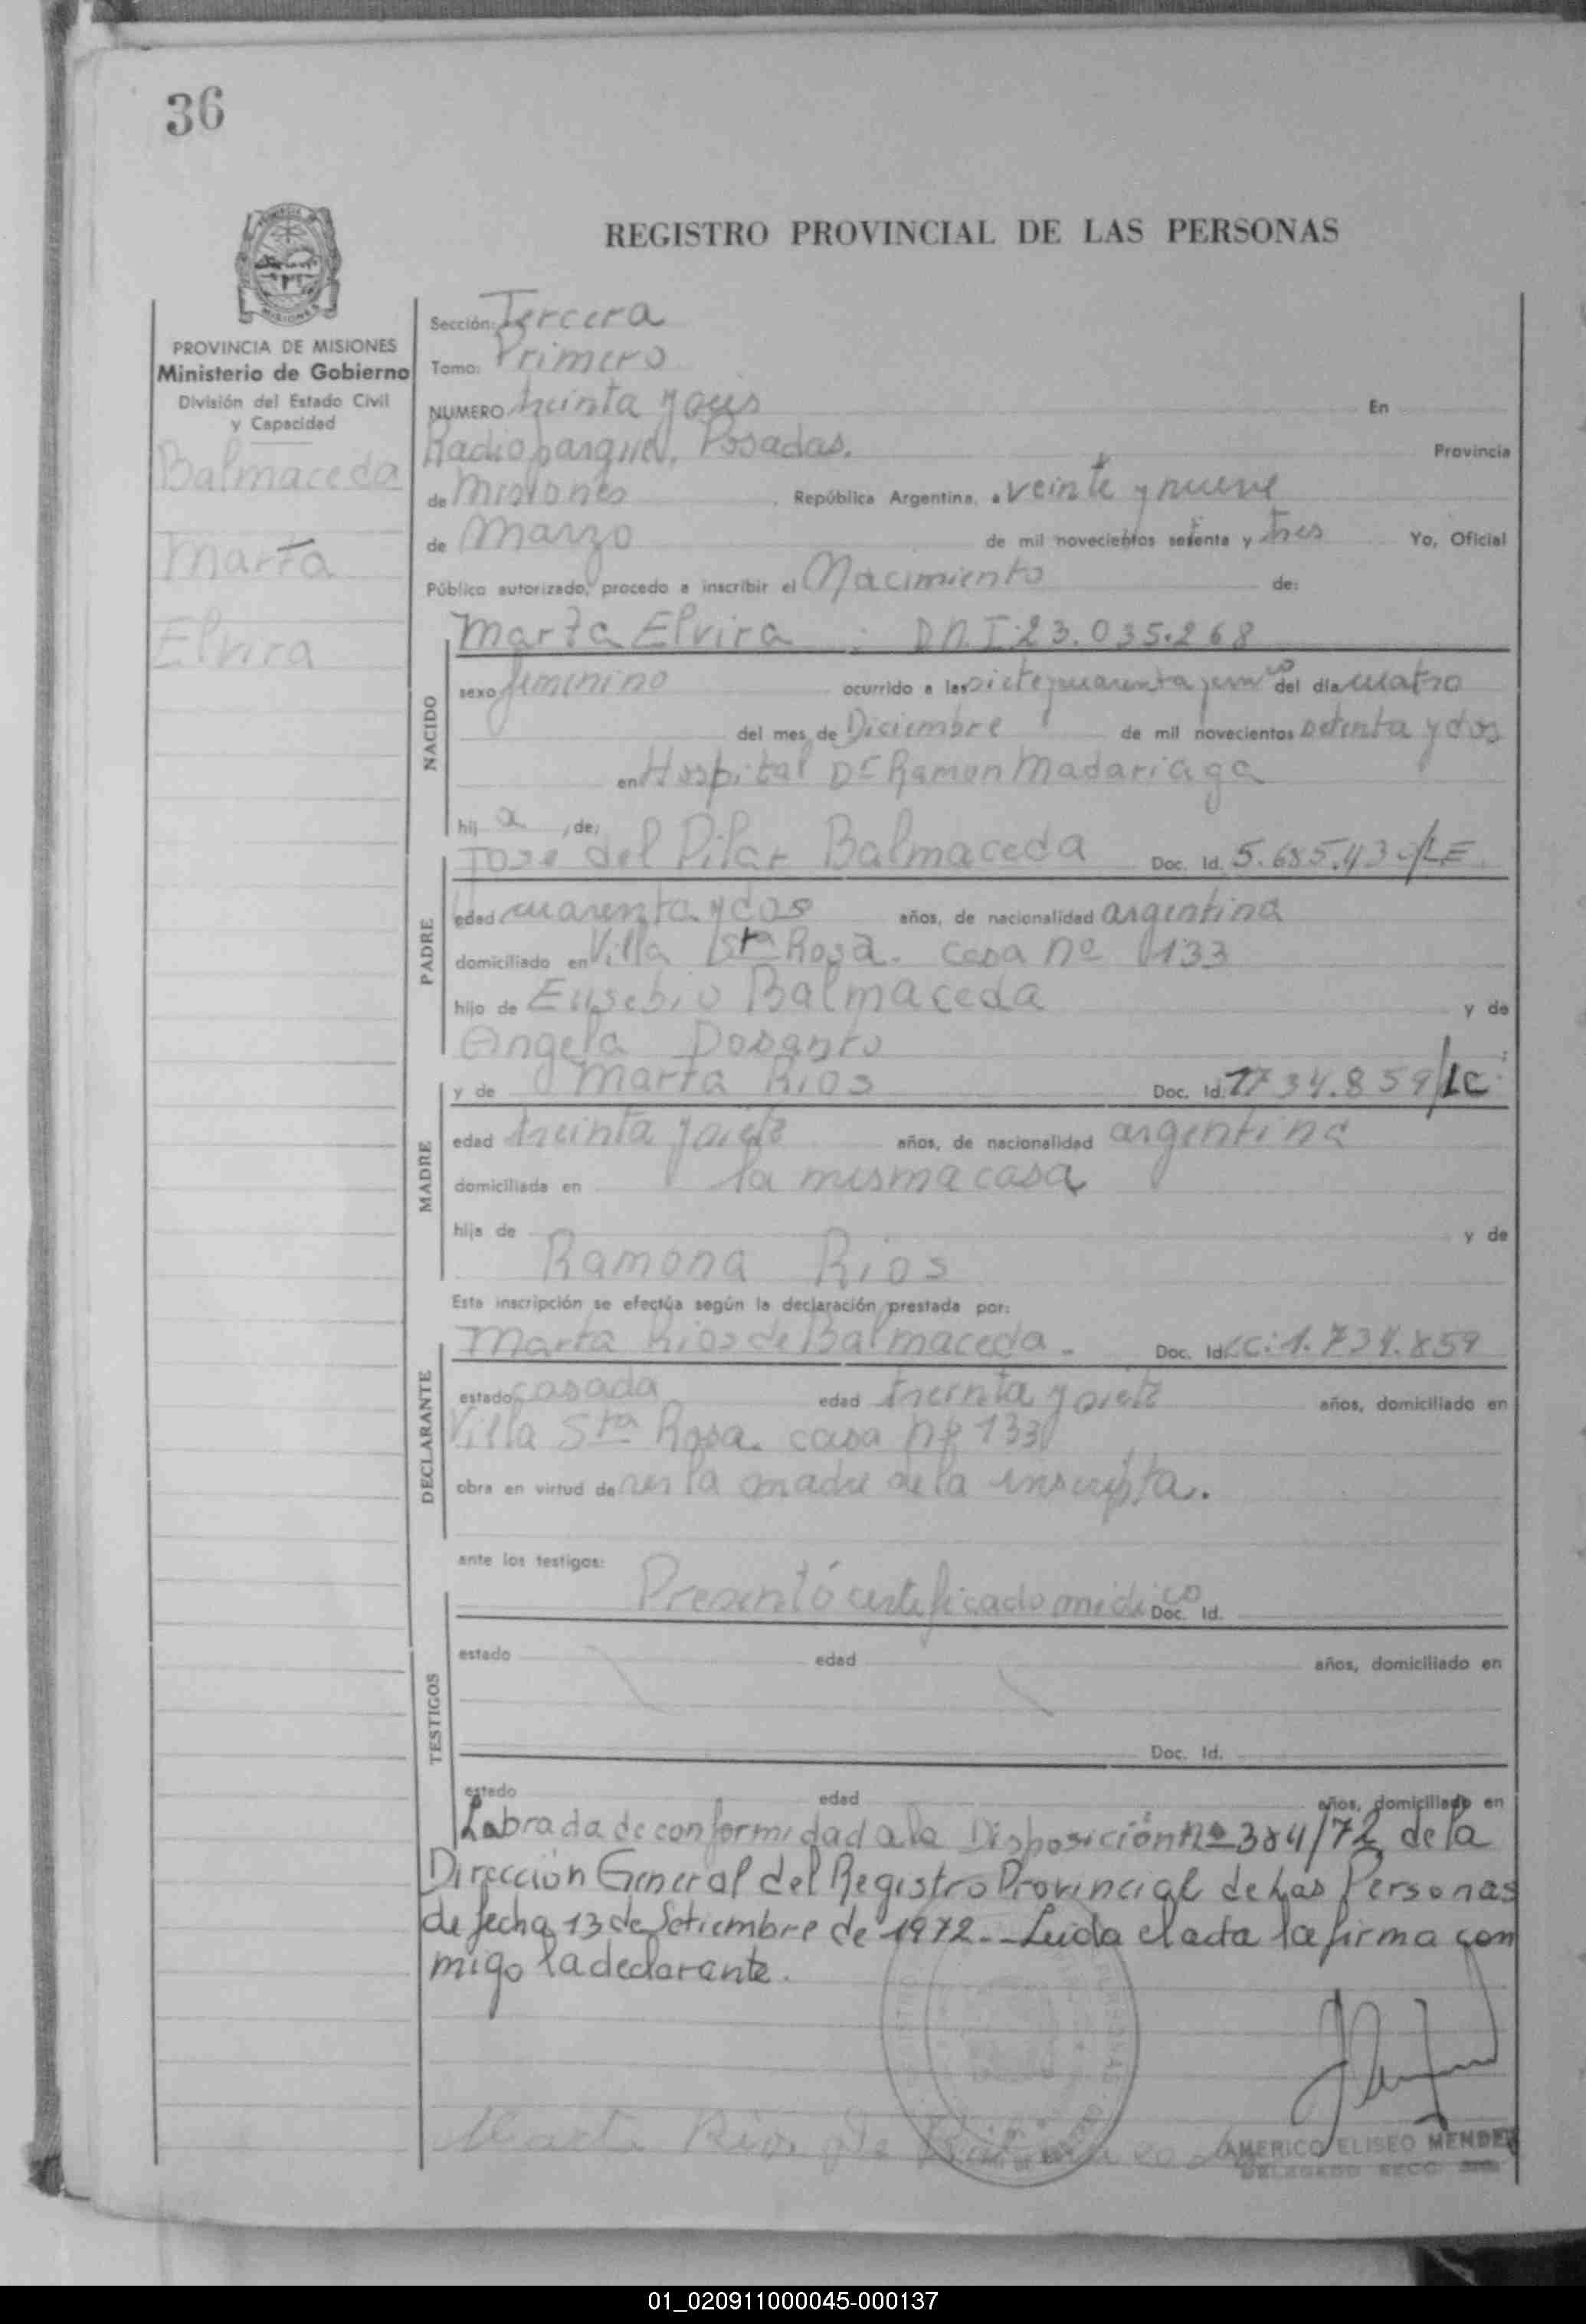 36
REGISTRO PROVINCIAL DE LAS PERSONAS
MISIONES
PROVINCIA DE MISIONES
Ministerio de Gobierno
División del Estado Civil
y Capacidad
Balmaceda
Marta
Elvira
Sección: Tercera
Tomo: Primero
NUMERO treinta y seis En
Posadas. Provincia
de Misiones, República Argentina, a veinte y nueve
de Marzo de mil novecientos setenta y tres Yo, Oficial
Público autorizado, procedo a inscribir el Nacimiento de:
NACIDO
Marta Elvira : D.N.I. 23.035.268
sexo femenino ocurrido a las siete y cuarenta y cinco del día cuatro
del mes de Diciembre de mil novecientos setenta y dos
en Hospital Dr Ramon Madariaga
hij a , de:
PADRE
José del Pilar Balmaceda Doc. Id. LE
edad cuarenta y dos años, de nacionalidad argentina
domiciliado en Villa Sta Rosa. casa nº 133
hijo de Eusebio Balmaceda y de
Angela Dosanto
MADRE
y de Marta Rios Doc. Id. 1734.859/LC
edad treinta y siete años, de nacionalidad argentina
domiciliada en la misma casa
hija de y de
Ramona Rios
Esta inscripción se efectúa según la declaración prestada por:
DECLARANTE
Marta Rios de Balmaceda - Doc. Id. LC: 1.734.859
estado casada edad treinta y siete años, domiciliado en
Villa Sta Rosa. casa nº 133
obra en virtud de ser la madre de la inscripta.
ante los testigos:
TESTIGOS
Presentó certificado médico Doc. Id.
estado edad años, domiciliado en
Doc. Id.
estado edad años, domiciliado en
Labrada de conformidad a la Disposición nº 384/72 de la
Dirección General del Registro Provincial de Las Personas
de fecha 13 de Setiembre de 1972.- Leida el acta la firma con
migo la declarante.
Marta Rios de Balmaceda
AMERICO ELISEO MENDEZ
DELEGADO SECC.
01_020911000045-000137